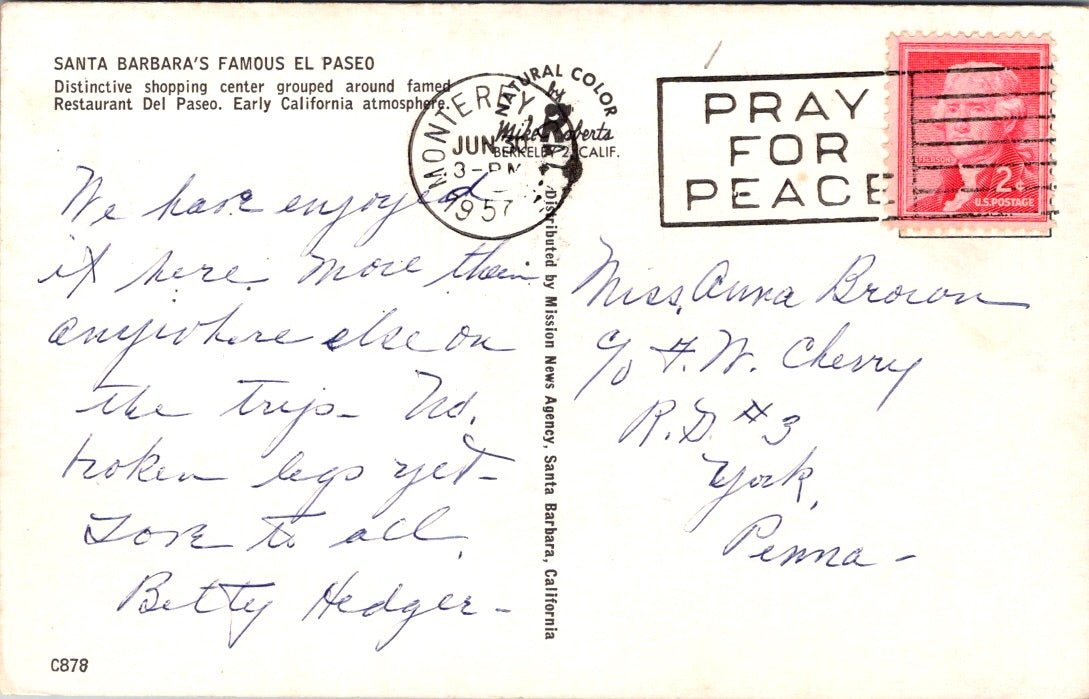 SANTA BARBARA'S FAMOUS EL PASEO
Distinctive shopping center grouped around famed
Restaurant Del Paseo. Early California atmosphere.
We have enjoyed
it here more than
anywhere else on
the trip - No.
broken legs yet -
Love to all.
Betty Hedger -
C878
MONTEREY
JUN
3 - PM
1957
NATURAL COLOR
Mike Roberts
BERKELEY 2, CALIF.
Distributed by Mission News Agency, Santa Barbara, California
PRAY
FOR
PEACE
JEFFERSON
2¢
U.S. POSTAGE
Miss. Anna Brown
c/o F. W. Cherry
R. D. #3
York,
Penna -